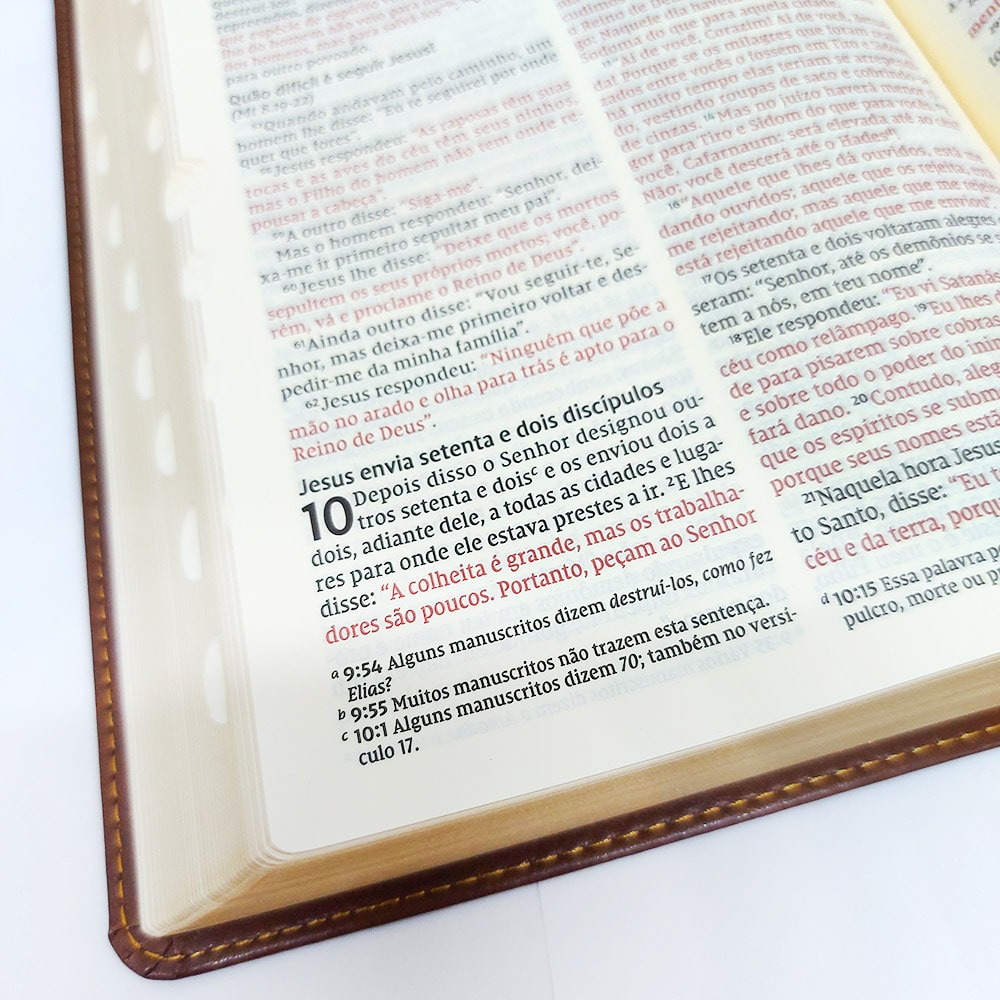 dos homens, mas para
para outro povoado.
Quão difícil é seguir Jesus!
(Mt 8.19-22)
57Quando andavam pelo caminho, um
homem lhe disse: "Eu te seguirei por onde
quer que fores".
58Jesus respondeu: "As raposas têm suas
tocas e as aves do céu têm seus ninhos,
mas o Filho do homem não tem onde re-
pousar a cabeça".
59A outro disse: "Siga-me".
Mas o homem respondeu: "Senhor, dei-
xa-me ir primeiro sepultar meu pai".
60Jesus lhe disse: "Deixe que os mortos
sepultem os seus próprios mortos; você, po-
rém, vá e proclame o Reino de Deus".
61Ainda outro disse: "Vou seguir-te, Se-
nhor, mas deixa-me primeiro voltar e des-
pedir-me da minha família".
62Jesus respondeu: "Ninguém que põe a
mão no arado e olha para trás é apto para o
Reino de Deus".
Jesus envia setenta e dois discípulos
10 Depois disso o Senhor designou ou-
tros setenta e doisc e os enviou dois a
dois, adiante dele, a todas as cidades e luga-
res para onde ele estava prestes a ir. 2E lhes
disse: "A colheita é grande, mas os trabalha-
dores são poucos. Portanto, peçam ao Senhor
a 9:54 Alguns manuscritos dizem destruí-los, como fez
Elias?
b 9:55 Muitos manuscritos não trazem esta sentença.
c 10:1 Alguns manuscritos dizem 70; também no versí-
culo 17.
Reino de
do: Naquele dia
doma do que para aquela cidade.
"Ai de você, Corazim! Ai de você,
da! Porque se os milagres que foram
zados entre vocês o fossem em Tiro e Sidom,
há muito tempo elas teriam se arrependi-
do, vestindo roupas de saco e cobrindo-
de cinzas. 14 Mas no juízo haverá menor
gor para Tiro e Sidom do que para você
você, Cafarnaum: será elevada até ao céu
Não; você descerá até o Hades!
16"Aquele que lhes dá ouvidos, está me
dando ouvidos; aquele que os rejeita, está
me rejeitando; mas aquele que me rejeita,
está rejeitando aquele que me enviou".
17Os setenta e dois voltaram alegres
seram: "Senhor, até os demônios se
tem a nós, em teu nome".
18Ele respondeu: "Eu vi Satanás
céu como relâmpago. 19Eu lhes
de para pisarem sobre cobras
e sobre todo o poder do inimi
fará dano. 20 Contudo, aleg
que os espíritos se subm
porque seus nomes estã
21Naquela hora Jesus
to Santo, disse: "Eu t
céu e da terra, porqu
d 10:15 Essa palavra p
pulcro, morte ou pr